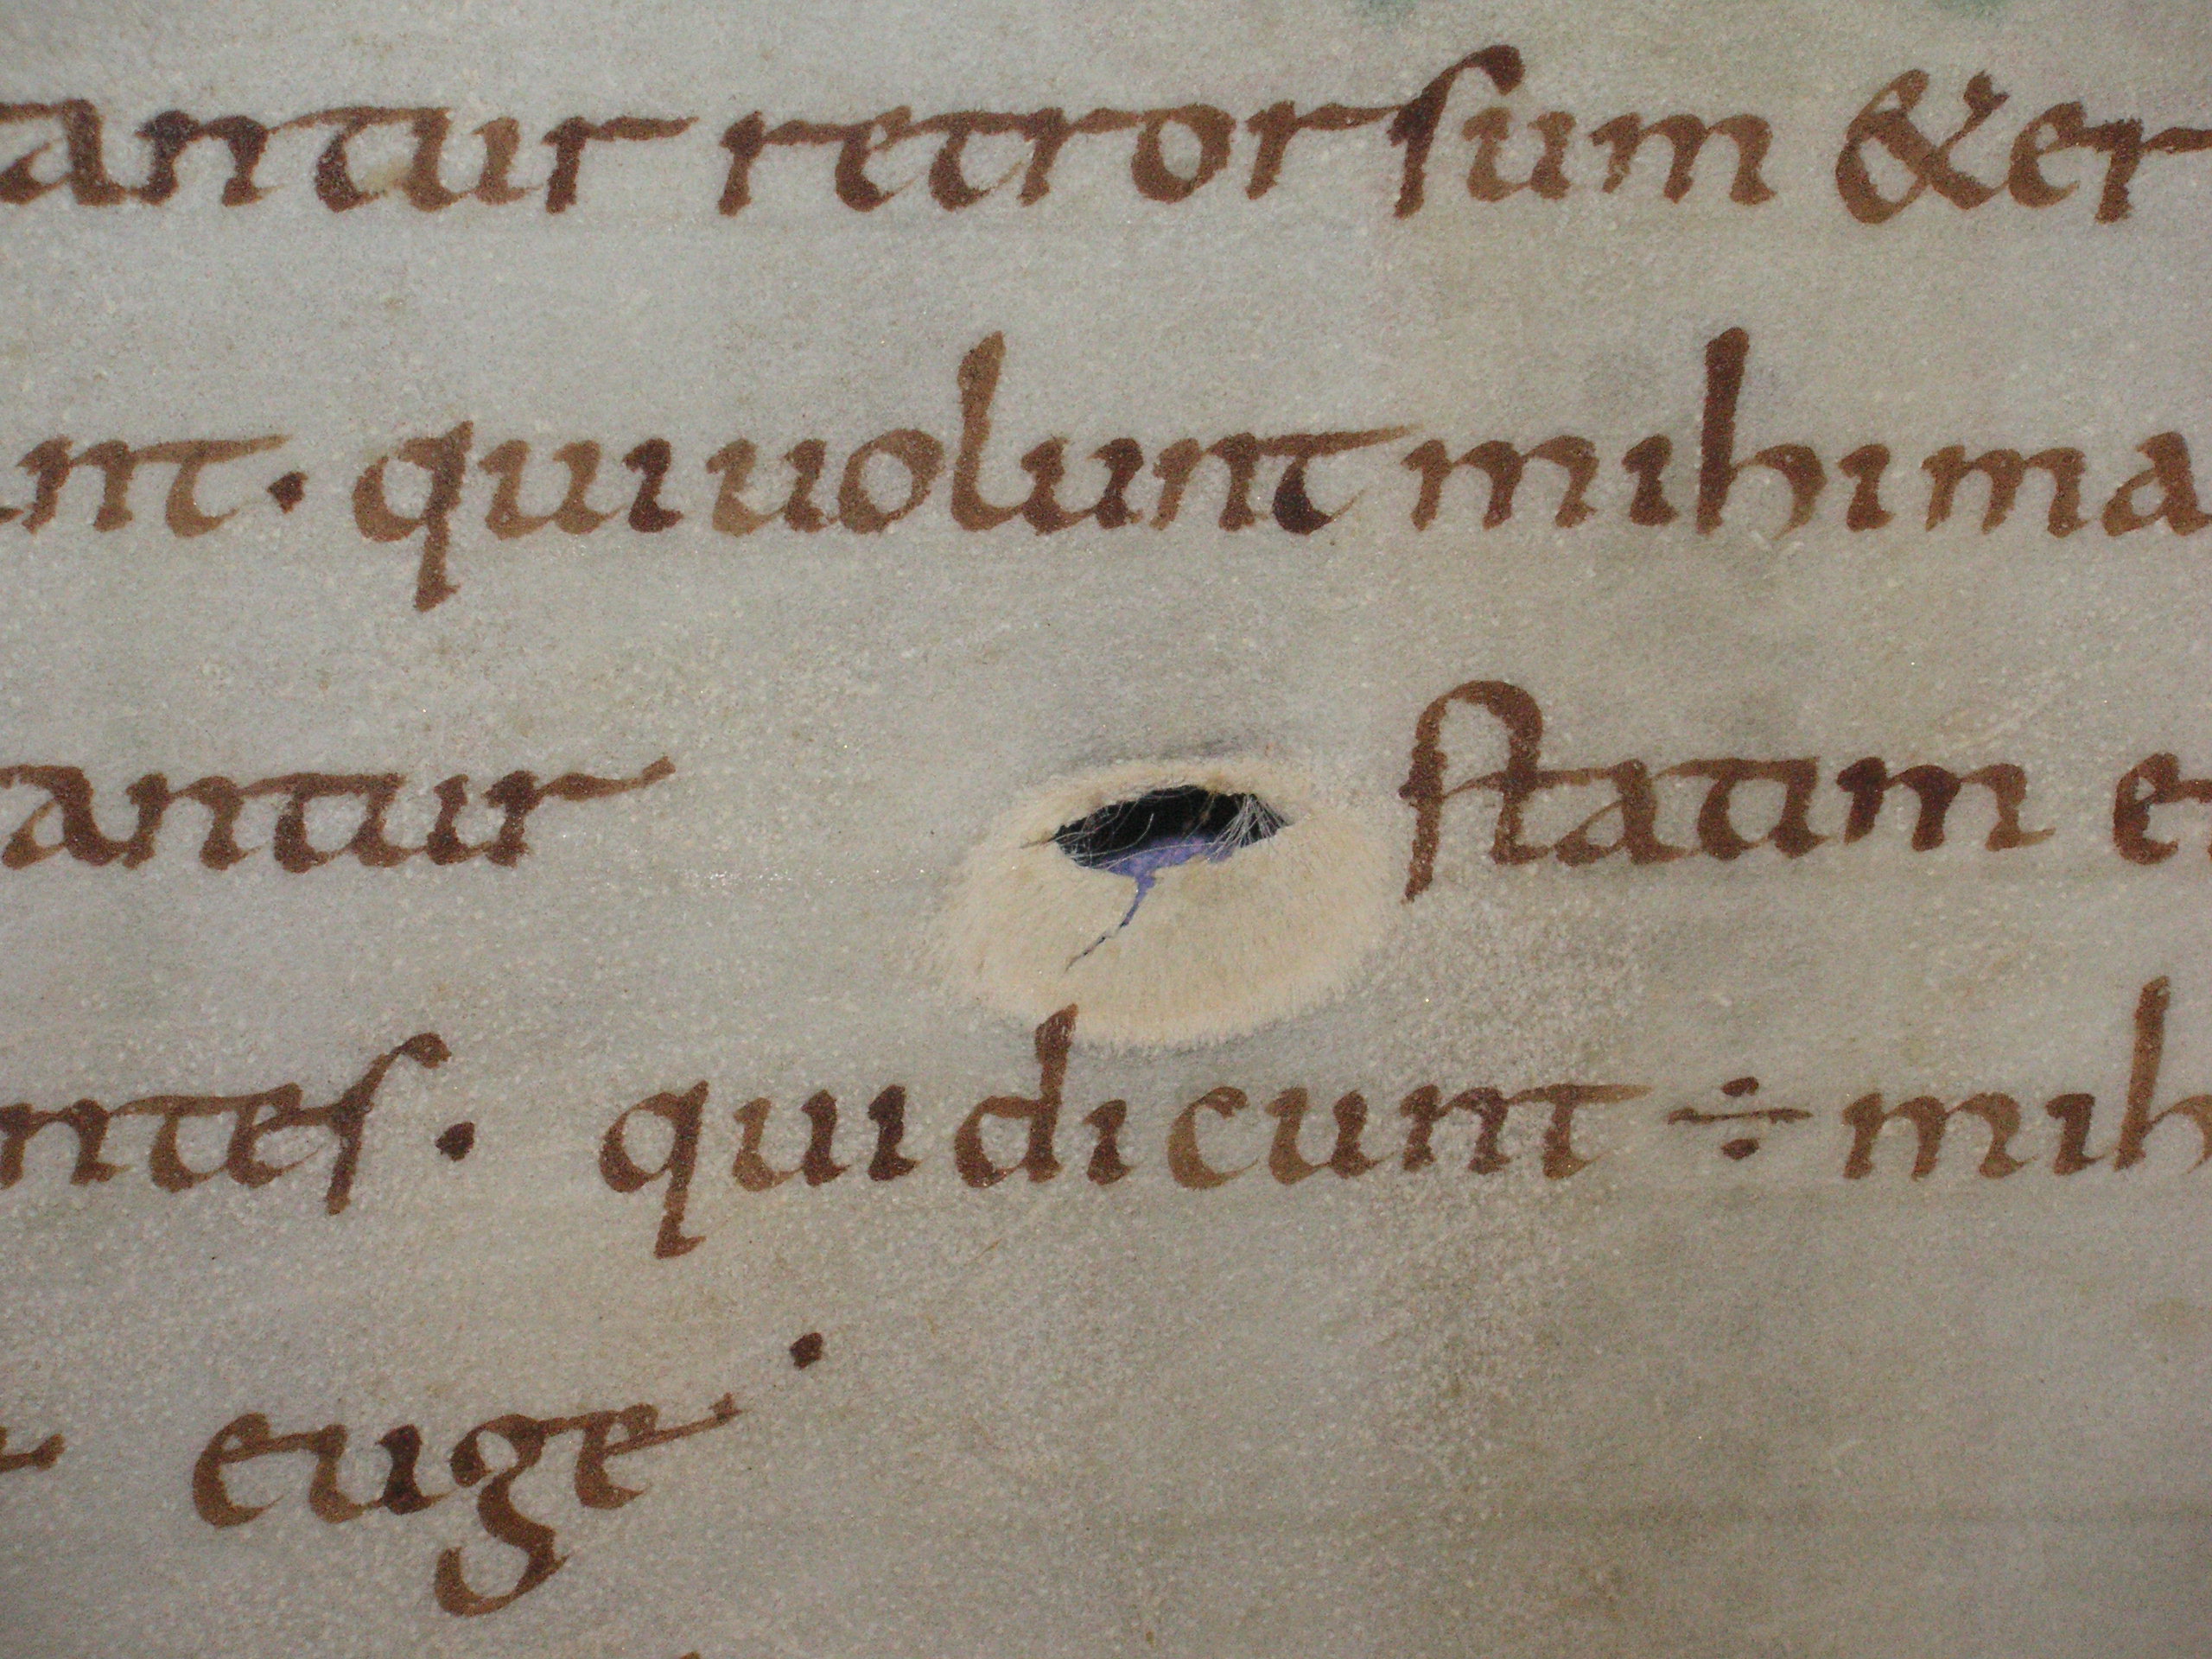 antur retrorsum & er
nt · qui uolunt mihi ma
antur statim er
ntes · qui dicunt ÷ mih
euge ·